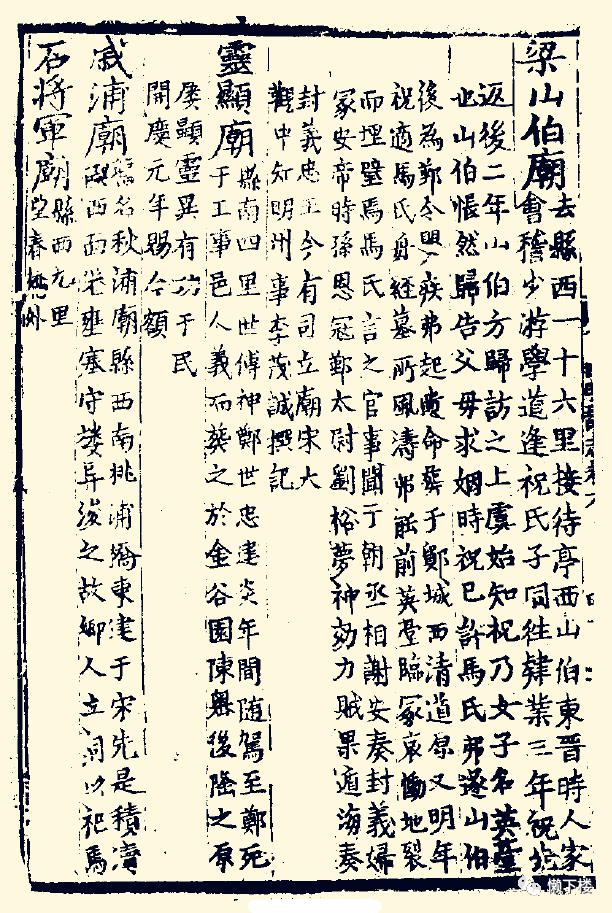 梁山伯廟 去縣西一十六里接待亭西山伯東晉時人家
會稽少游學道逢祝氏子同往肄業三年祝先
返後二年山伯方歸訪之上虞始知祝乃女子名英臺
也山伯悵然歸告父母求姻時祝已許馬氏弗遂山伯
後為鄞令嬰疾弗起遺命葬于鄮城西清道原又明年
祝適馬氏舟經墓所風濤弗能前英臺臨冢哀慟地裂
而埋璧焉馬氏言之官事聞于朝丞相謝安奏封義婦
冢安帝時孫恩寇鄞太尉劉裕夢神効力賊果遁海奏
封義忠王令有司立廟宋大
觀中知明州事李茂誠撰記
靈顯廟 縣南四里世傳神鄭世忠建炎年間随駕至鄭死
于工事邑人義而葬之於金谷園陳後隆之原
屡顯靈異有功于民
開慶元年賜今額
戚浦廟 舊名秋浦廟縣西南桃浦橋東建于宋先是積瀆
碶西面壅塞守之故鄉人立祠以祀焉
石将軍廟 縣西九里
望春橋外
懒下楼